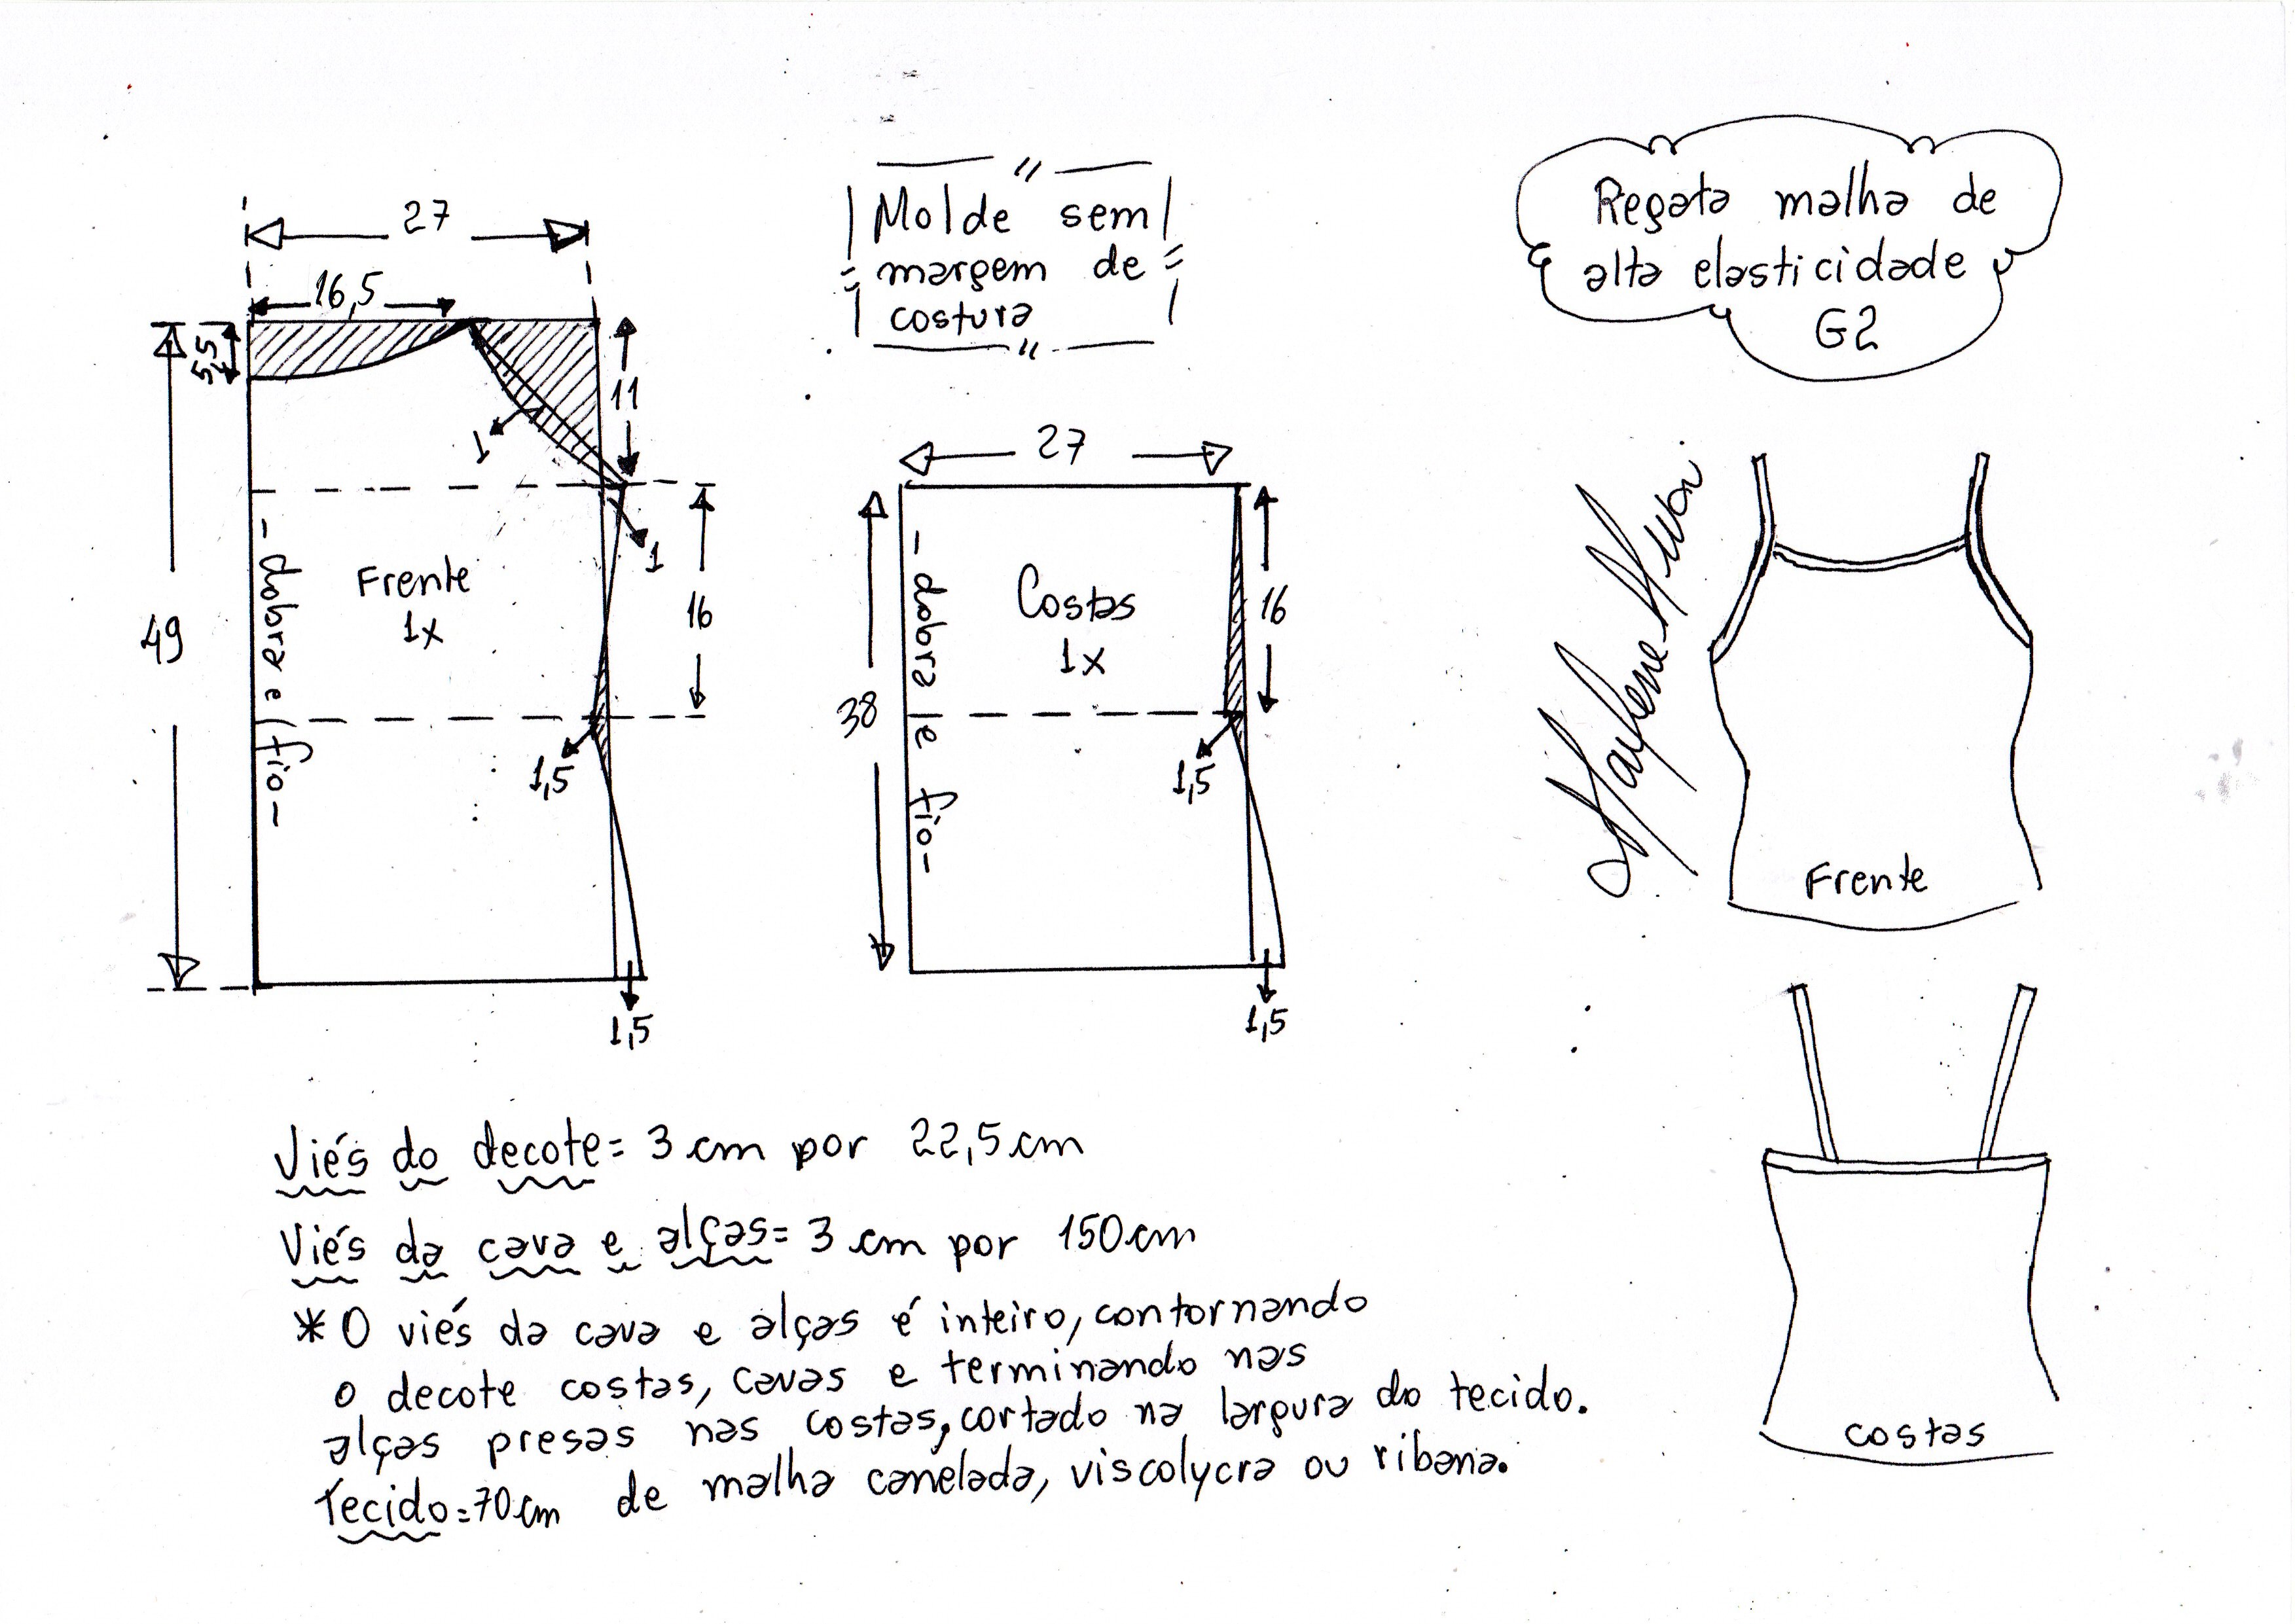 27
16,5
5,5
11
1
1
16
49
- dobra e fio -
Frente
1x
1,5
1,5
Molde sem
margem de
costura
27
38
- dobra e fio -
Costas
1x
16
1,5
1,5
Regata malha de
alta elasticidade
G2
Frente
costas
Viés do decote = 3 cm por 22,5 cm
Viés da cava e alças = 3 cm por 150 cm
* O viés da cava e alças é inteiro, contornando
o decote costas, cavas e terminando nas
alças presas nas costas, cortado na largura do tecido.
Tecido = 70 cm de malha canelada, viscolycra ou ribana.